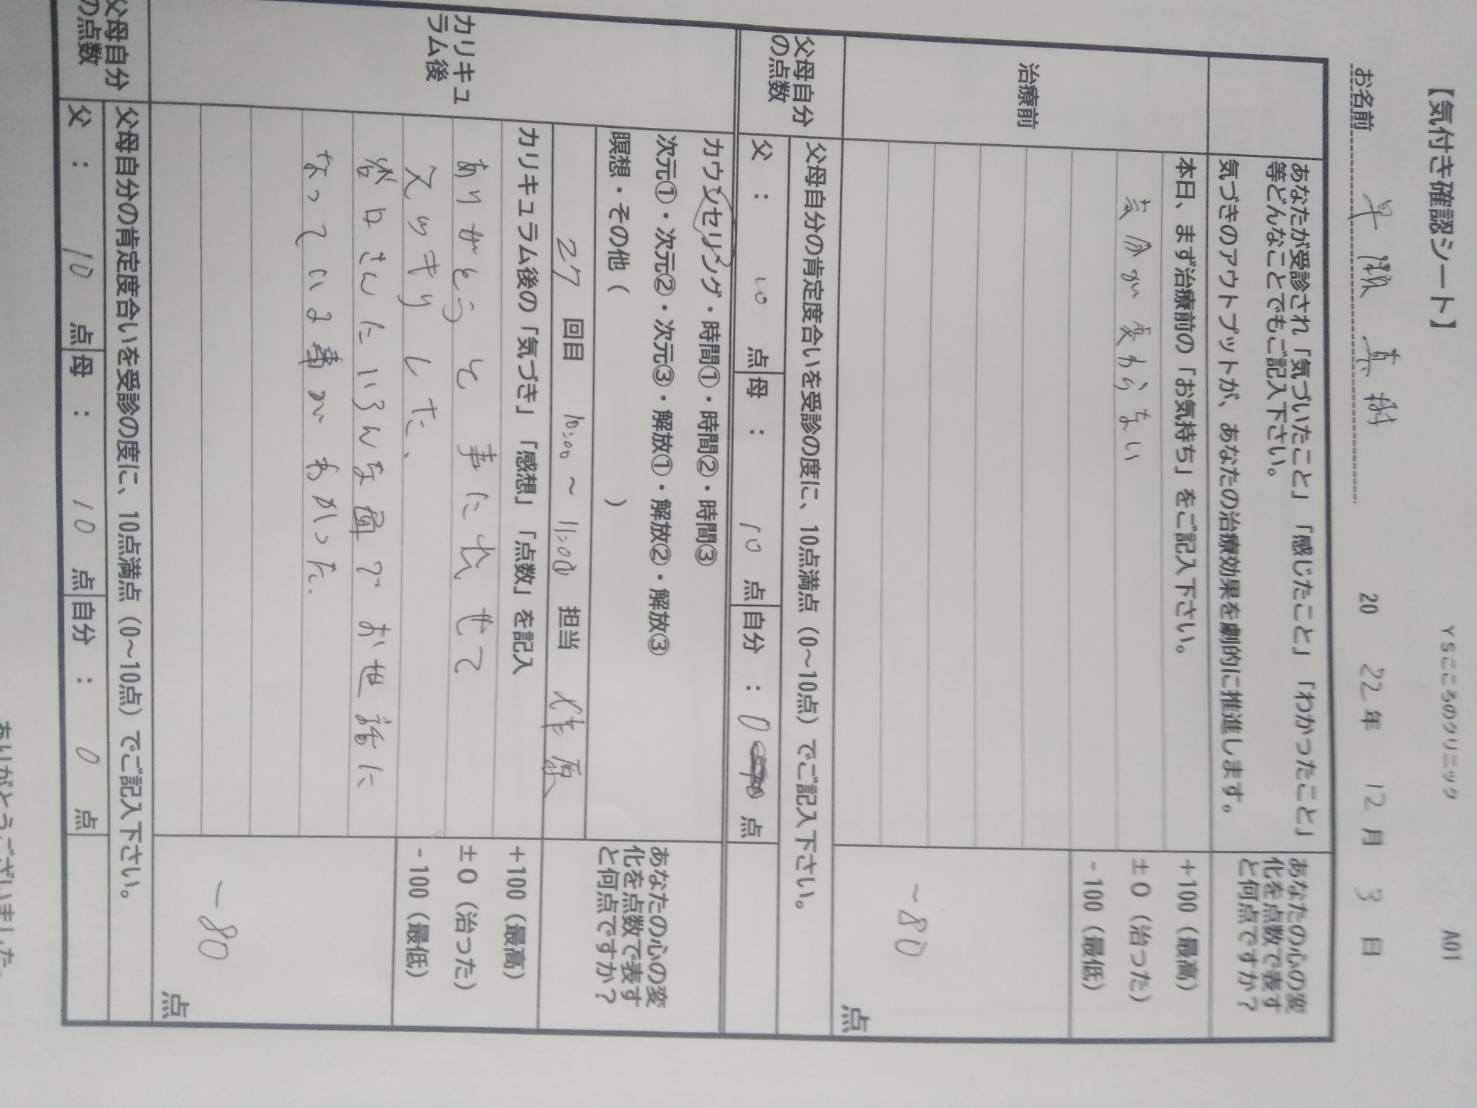 【気付き確認シート】
YSこころのクリニック A01
お名前 早瀬 真樹 2022年 12月 3日
あなたが受診され「気づいたこと」「感じたこと」「わかったこと」
等どんなことでもご記入下さい。
気づきのアウトプットが、あなたの治療効果を劇的に推進します。
あなたの心の変
化を点数で表す
と何点ですか？
治療前
本日、まず治療前の「お気持ち」をご記入下さい。
気分が変わらない
+100（最高）
±0（治った）
-100（最低）
-80
点
父母自分
の点数
父母自分の肯定度合いを受診の度に、10点満点（0～10点）でご記入下さい。
父： 10 点 母： 10 点 自分：0 点
カリキュ
ラム後
カウンセリング・時間①・時間②・時間③
次元①・次元②・次元③・解放①・解放②・解放③
瞑想・その他（ ）
27 回目 10:00 ～ 11:00 担当 原
あなたの心の変
化を点数で表す
と何点ですか？
カリキュラム後の「気づき」「感想」「点数」を記入
ありがとうと 事に出せて
スッキリした、
さんにいろんな面でお世話に
なっている事がわかった.
+100（最高）
±0（治った）
-100（最低）
-80
点
父母自分
の点数
父母自分の肯定度合いを受診の度に、10点満点（0～10点）でご記入下さい。
父： 10 点 母： 10 点 自分： 0 点
ありがとうございました。